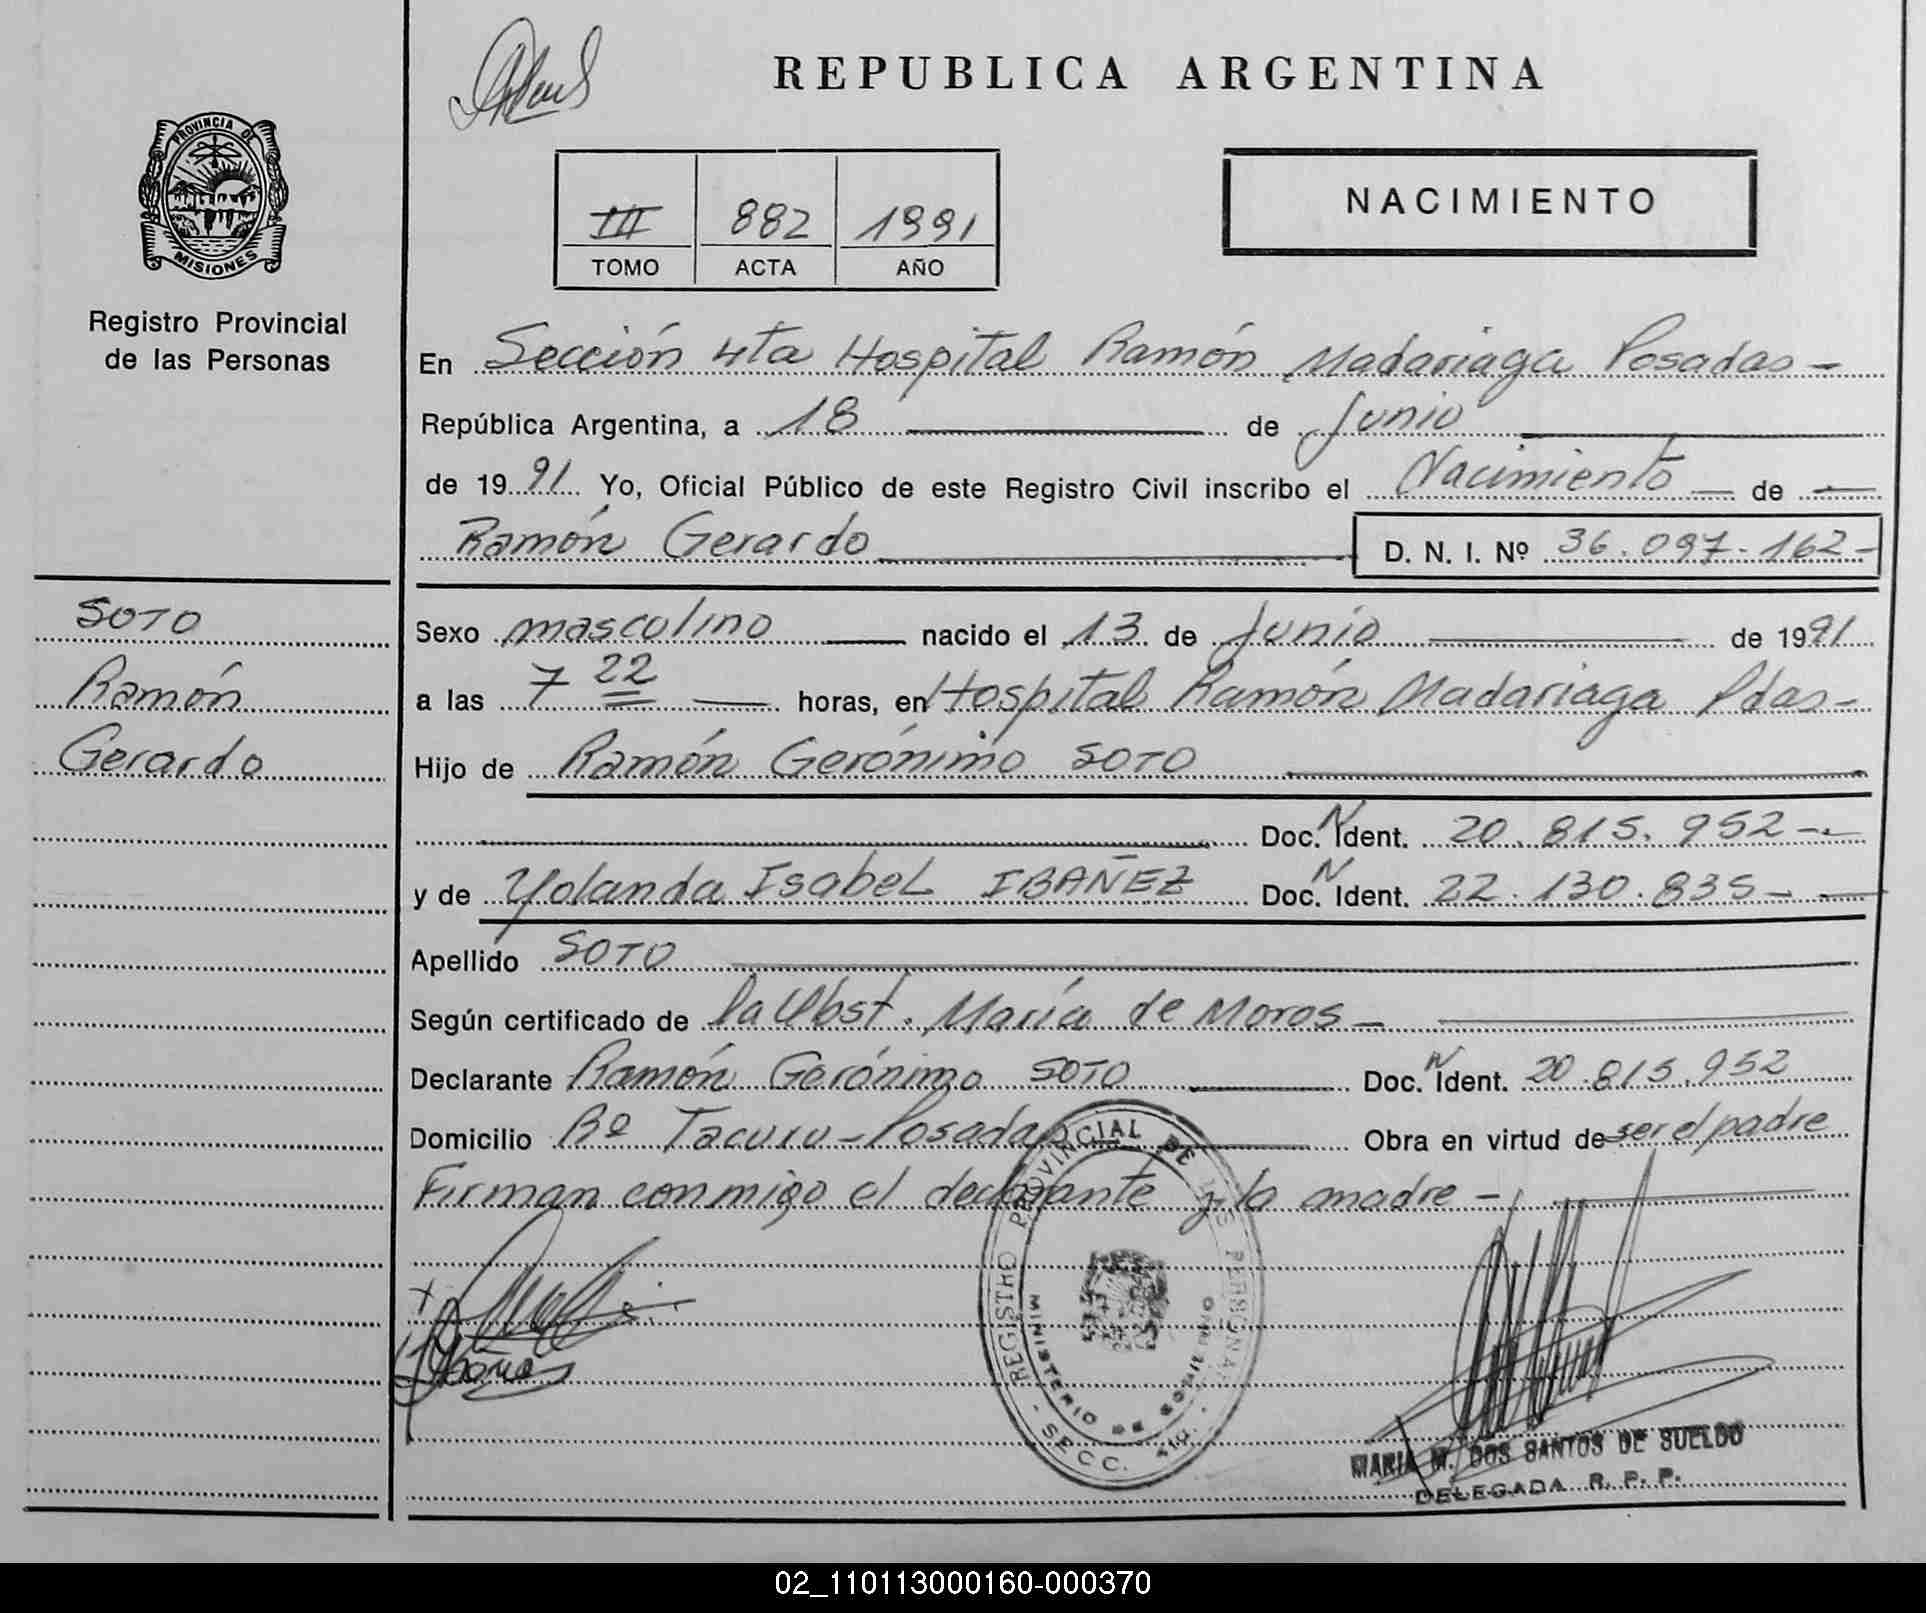 REPUBLICA ARGENTINA
PROVINCIA DE
MISIONES
Registro Provincial
de las Personas
III 882 1991
TOMO ACTA AÑO
NACIMIENTO
En Sección 4ta Hospital Ramón Madariaga Posadas -
República Argentina, a 18 de Junio
de 1991 Yo, Oficial Público de este Registro Civil inscribo el Nacimiento de
Ramón Gerardo D. N. I. Nº 36.097.162-
SOTO
Ramón
Gerardo
Sexo masculino nacido el 13 de Junio de 1991
a las 7 22 horas, en Hospital Ramón Madariaga Pdas-
Hijo de Ramón Gerónimo SOTO
Doc. N Ident. 20.815.952-
y de Yolanda Isabel IBAÑEZ Doc. N Ident. 22.130.835-
Apellido SOTO
Según certificado de la Obst. María de Moros -
Declarante Ramón Gerónimo SOTO Doc. N Ident. 20.815.952
Domicilio Bº Tacuru - Posadas Obra en virtud de ser el padre
Firman conmigo el declarante y la madre -
REGISTRO PROVINCIAL DE LAS PERSONAS
MINISTERIO DE GOBIERNO
- SECC. 4ta. -
MARIA M. DOS SANTOS DE SUELDO
DELEGADA R. P. P.
02_110113000160-000370